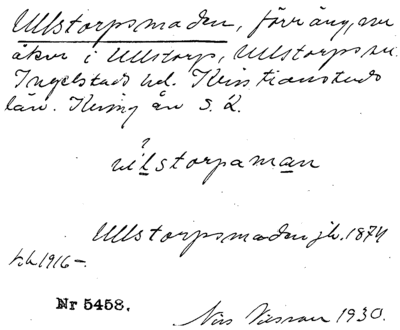 Ullstorpsmaden, förr äng, nu
åker i Ullstorp, Ullstorps sn.
Ingelstads hd. Kristianstads
län. Kring ån S. L.
Ullstorpsmaden jk. 1874
hk 1916–.
Nr 5458.
Nils Nilsson 1930.